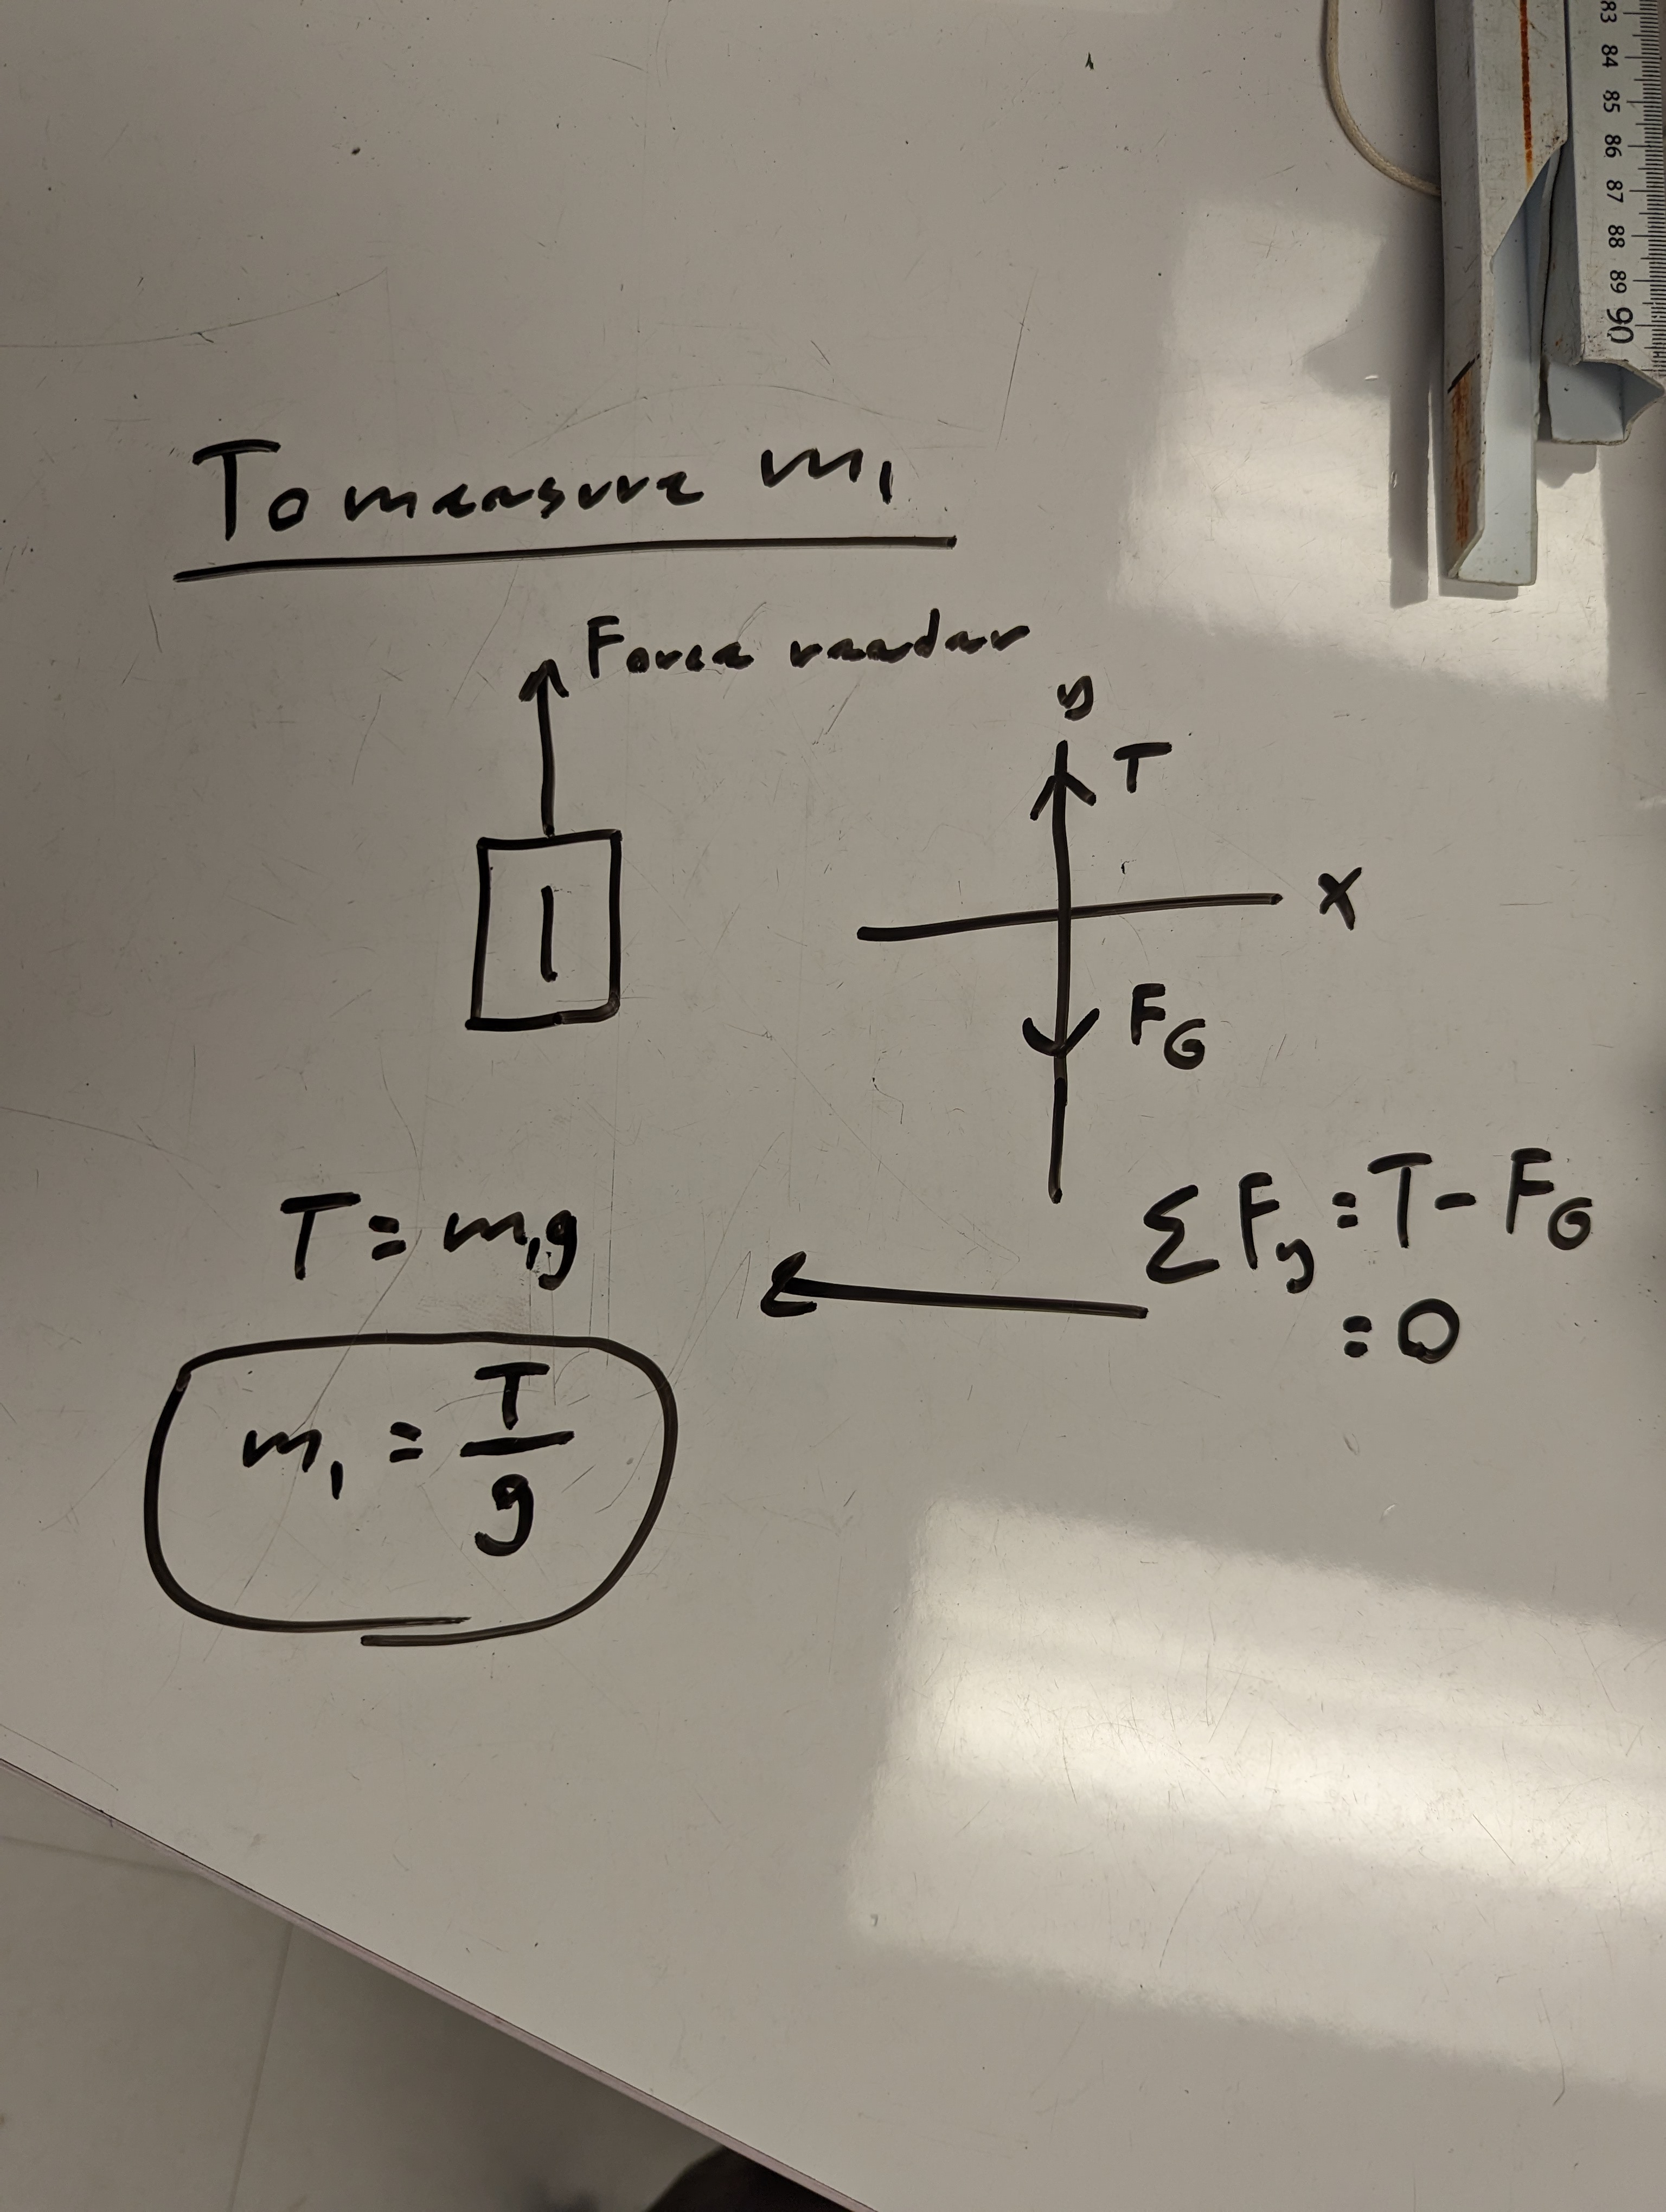 83
84
85
86
87
88
89
90
To measure m₁
Force reader
y
T
x
1
F_G
ΣF_y = T - F_G
= 0
T = m₁g
m₁ = T/g